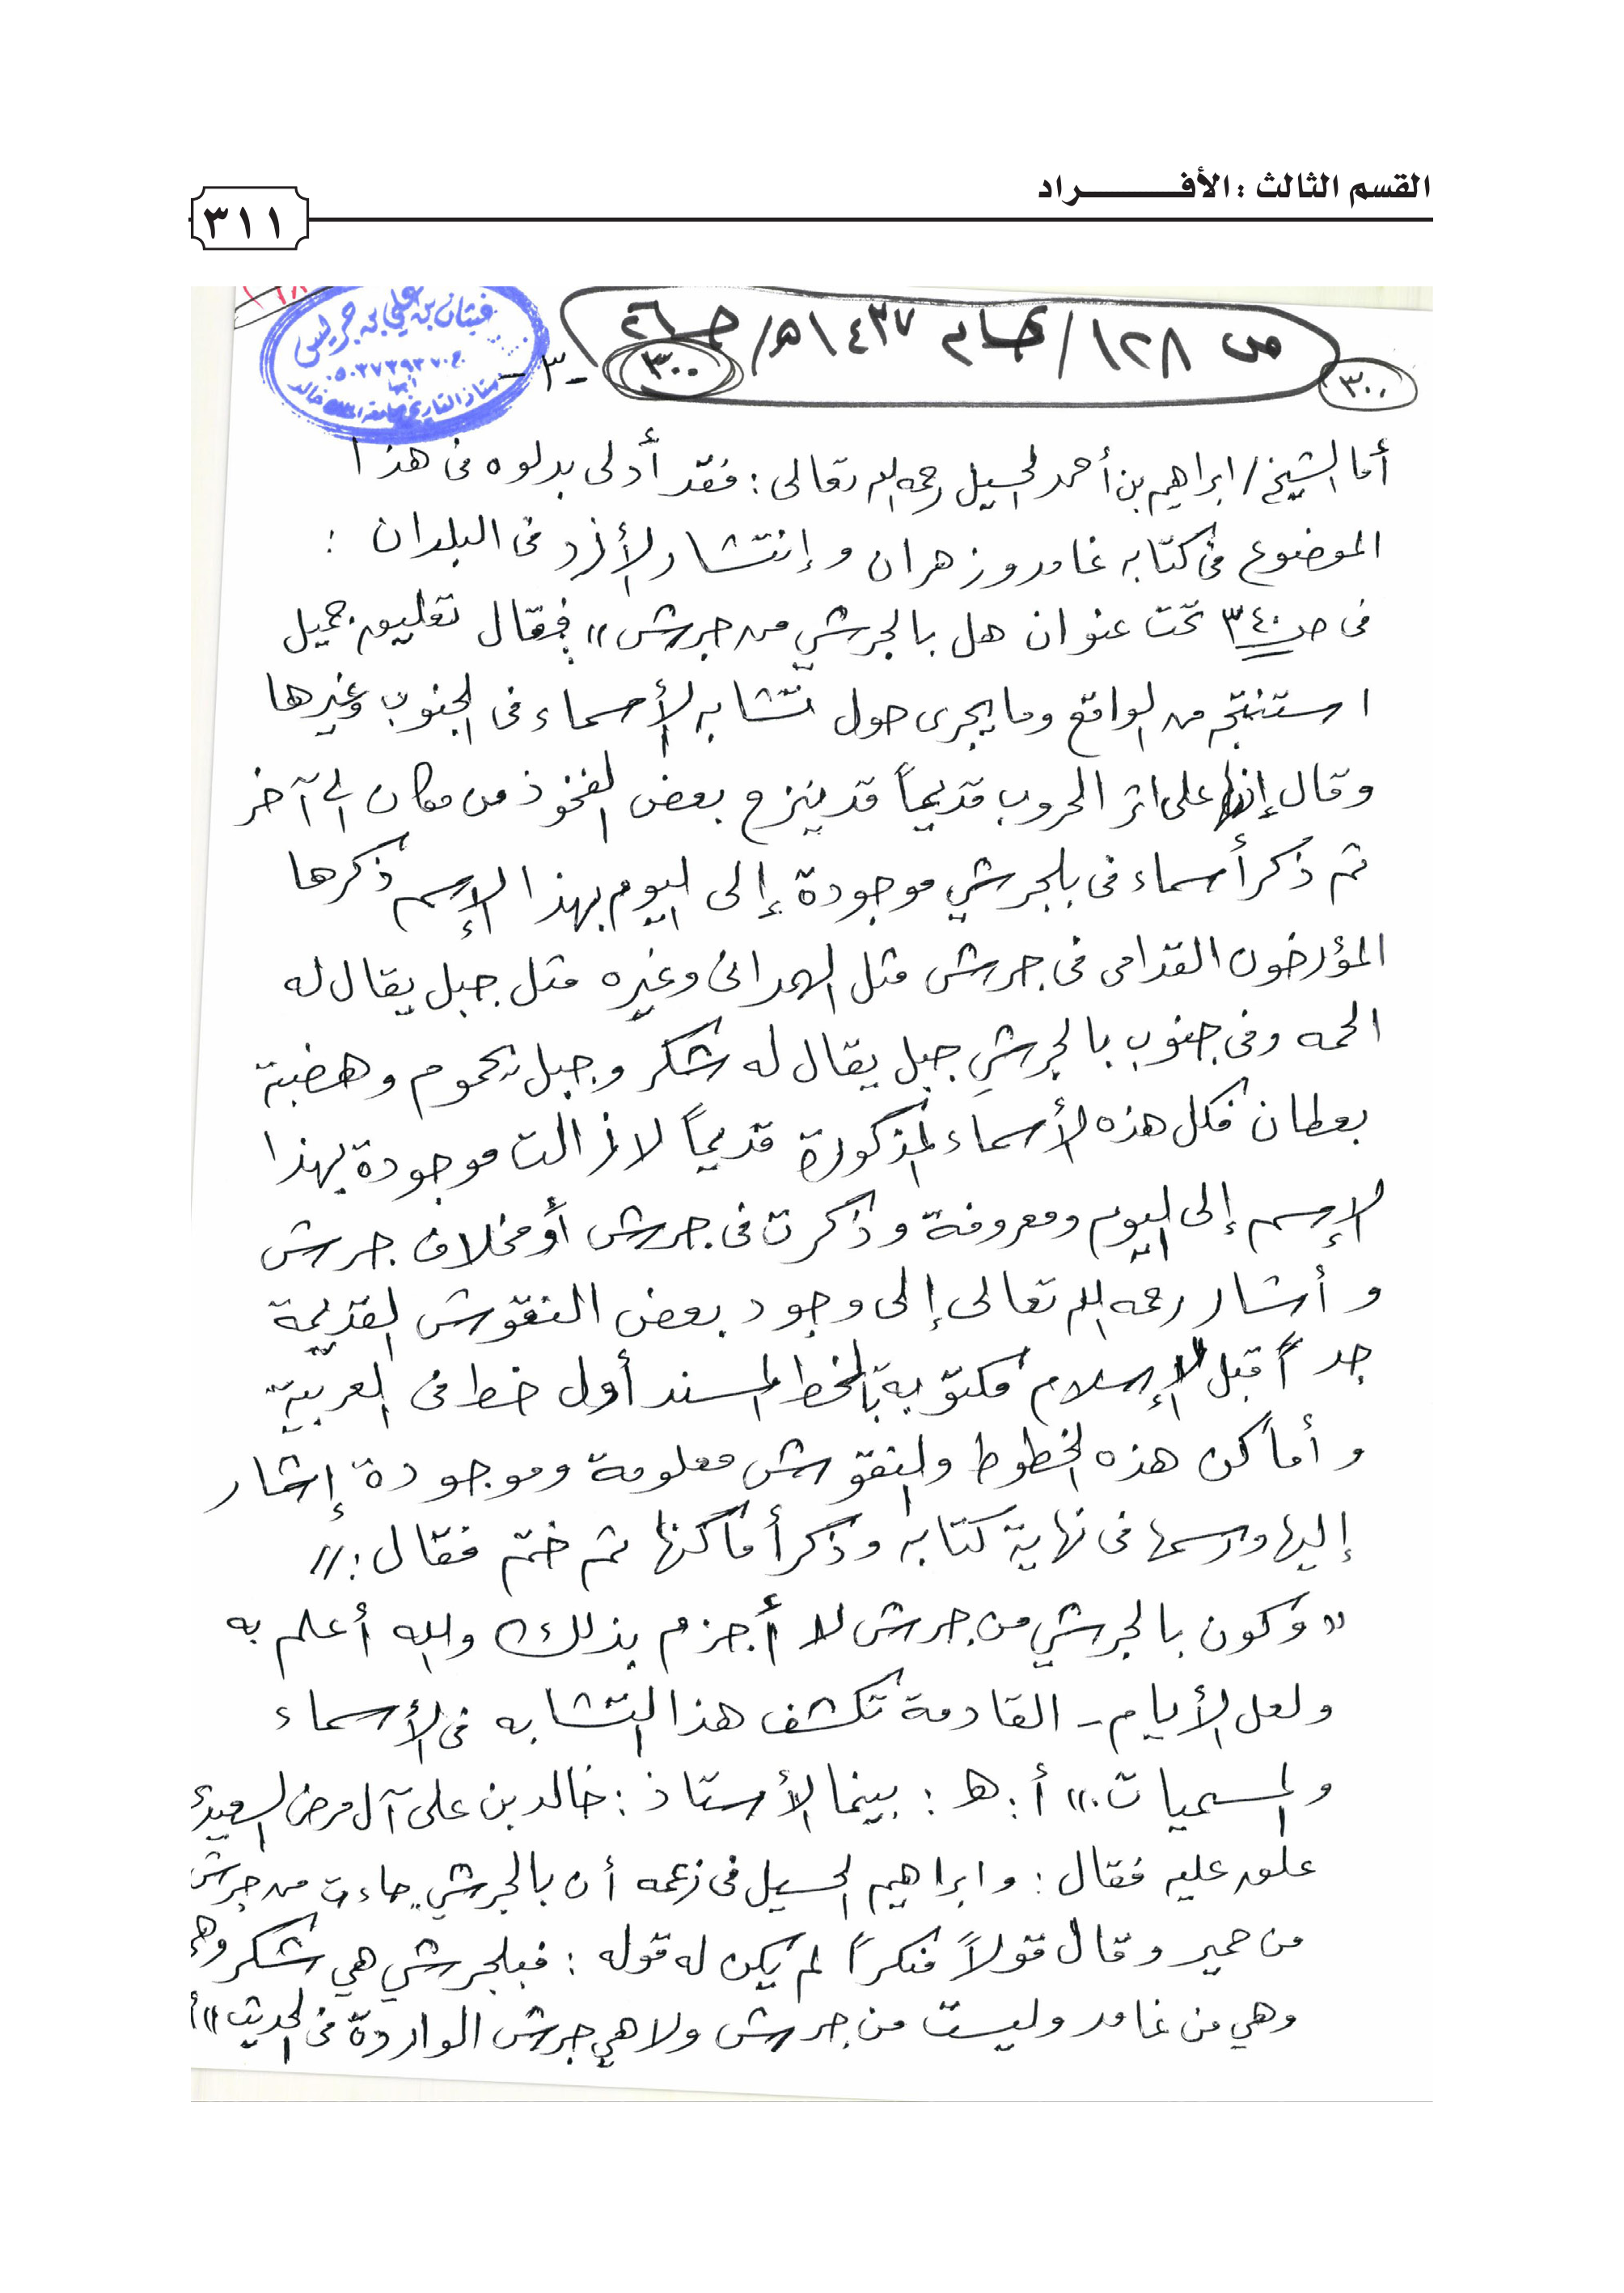 القسم الثالث : الأفـــراد
٣١١
ص ١٢٨ / عام ١٤٣٧هـ / جـ ٢٦
٣٠٠
٣٠٠
-٣-
غيثان بن علي بن جريس
أستاذ التاريخ بجامعة الملك خالد
أما الشيخ / ابراهيم بن أحمد الحسيل رحمه الله تعالى : فقد أدلى بدلوه فى هذا
الموضوع فى كتابه غامد وزهران وإنتشار الأزد فى البلدان :
فى صـ ٣٤٠ تحت عنوان هل بالجرشي من جرش )) فقال تعليق جميل
استنتجه من الواقع وما يجرى حول تشابه الأسماء فى الجنوب وغيرها
وقال إنه على اثر الحروب قديماً قد ينزح بعض الفخوذ من مكان إلى آخر
ثم ذكر أسماء فى بلجرشي موجودة إلى اليوم بهذا الإسم ذكرها
المؤرخون القدامى فى جرش مثل الهمدانى وغيره مثل جبل يقال له
الحمه وفى جنوب بالجرشي جبل يقال له شكر وجبل يحموم وهضبة
بعطان فكل هذه الأسماء المذكورة قديماً لازالت موجودة بهذا
الإسم إلى اليوم ومعروفة وذكرت فى جرش أو مخلاف جرش
وأشار رحمه الله تعالى إلى وجود بعض النقوش القديمة
جداً قبل الإسلام مكتوبة بالخط المسند أول خط فى العربية
وأماكن هذه الخطوط والنقوش معلومة وموجودة إشار
إليها ورسمها فى نهاية كتابه وذكر أماكنها ثم ختم فقال : ))
(( وكون بالجرشي من جرش لا أجزم بذلك والله أعلم به
ولعل الأيام - القادمة تكشف هذا التشابه فى الأسماء
والمسميات )) أ . هـ : بينما الأستاذ : خالد بن على آل مرضي السعيدى
علق عليه فقال : وابراهيم الحسيل فى زعمه أن بالجرشي جاءت من جرش
من حمير وقال قولاً منكراً لم يكن له قوله : فبلجرشي هي شكر وهي
وهي من غامد وليست من جرش ولا هي جرش الواردة فى الحديث )) أ